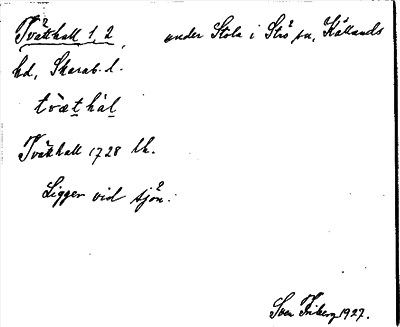 Tvätthall 1, 2, under Stola i Strö sn, Kållands
hd, Skarab. l.
tvæt hål
Tvätthall 1728 lk.
Ligger vid sjön.
Sven Friberg 1927.